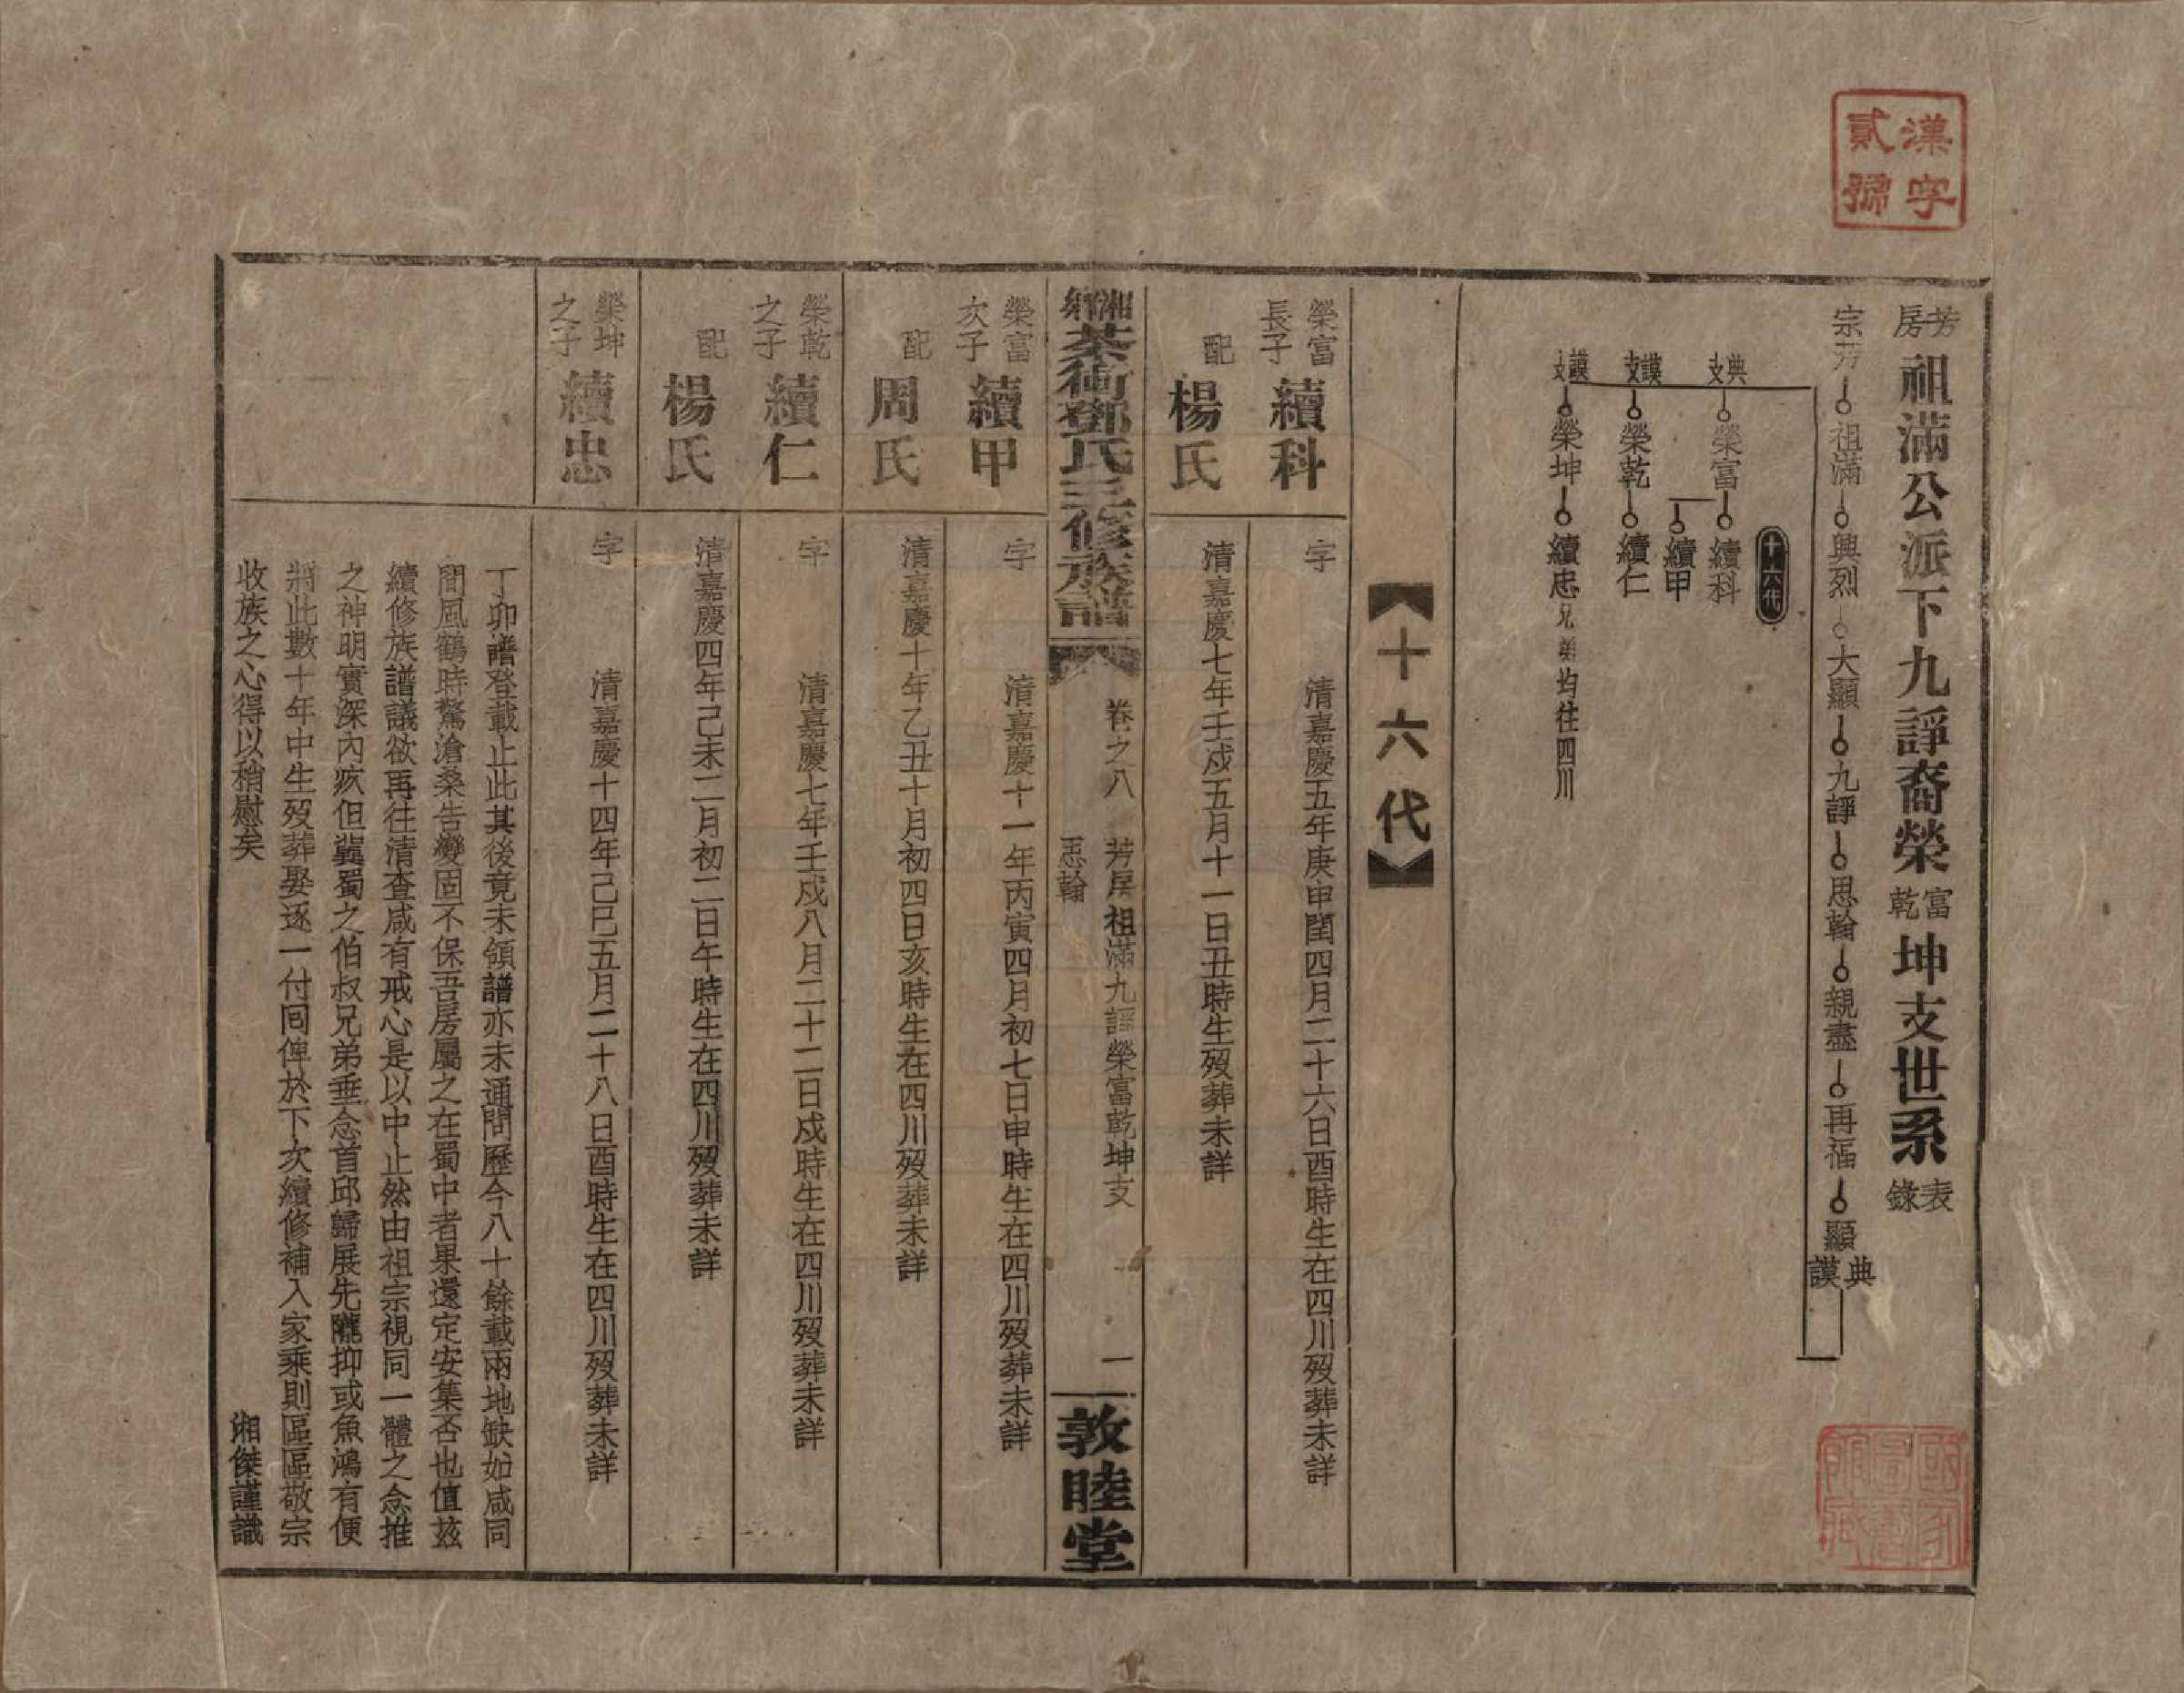 漢字
貳號
芳房祖滿公派下九諍裔榮富乾坤支世系表錄
宗芳 祖滿 興烈 大顯 九諍 思翰 親盡 再福 顯典謨
十六代
典支 榮富 續科
續甲
謨支 榮乾 續仁
謨支 榮坤 續忠兄弟均往四川
十六代
榮富長子續科 字 清嘉慶五年庚申閏四月二十六日酉時生在四川歿葬未詳
配楊氏 清嘉慶七年壬戍五月十一日丑時生歿葬未詳
湘鄉茶衝鄧氏三修族譜 卷之八 芳房祖滿九諍榮富乾坤支 思翰 一 敦睦堂
榮富次子續甲 字 清嘉慶十一年丙寅四月初七日申時生在四川歿葬未詳
配周氏 清嘉慶十年乙丑十月初四日亥時生在四川歿葬未詳
榮乾之子續仁 字 清嘉慶七年壬戍八月二十二日戍時生在四川歿葬未詳
配楊氏 清嘉慶四年己未二月初二日午時生在四川歿葬未詳
榮坤之子續忠 字 清嘉慶十四年己巳五月二十八日酉時生在四川歿葬未詳
丁卯譜登載止此其後竟未領譜亦未通問歷今八十餘載兩地缺如咸同
間風鶴時驚滄桑告變固不保吾房屬之在蜀中者果還定安集否也值茲
續修族譜議欲再往清查咸有戒心是以中止然由祖宗視同一體之念推
之神明實深內疚但冀蜀之伯叔兄弟垂念首邱歸展先隴抑或魚鴻有便
將此數十年中生歿葬娶逐一付回俾於下次續修補入家乘則區區敬宗
收族之心得以稍慰矣 湘傑謹識
國家圖書館藏